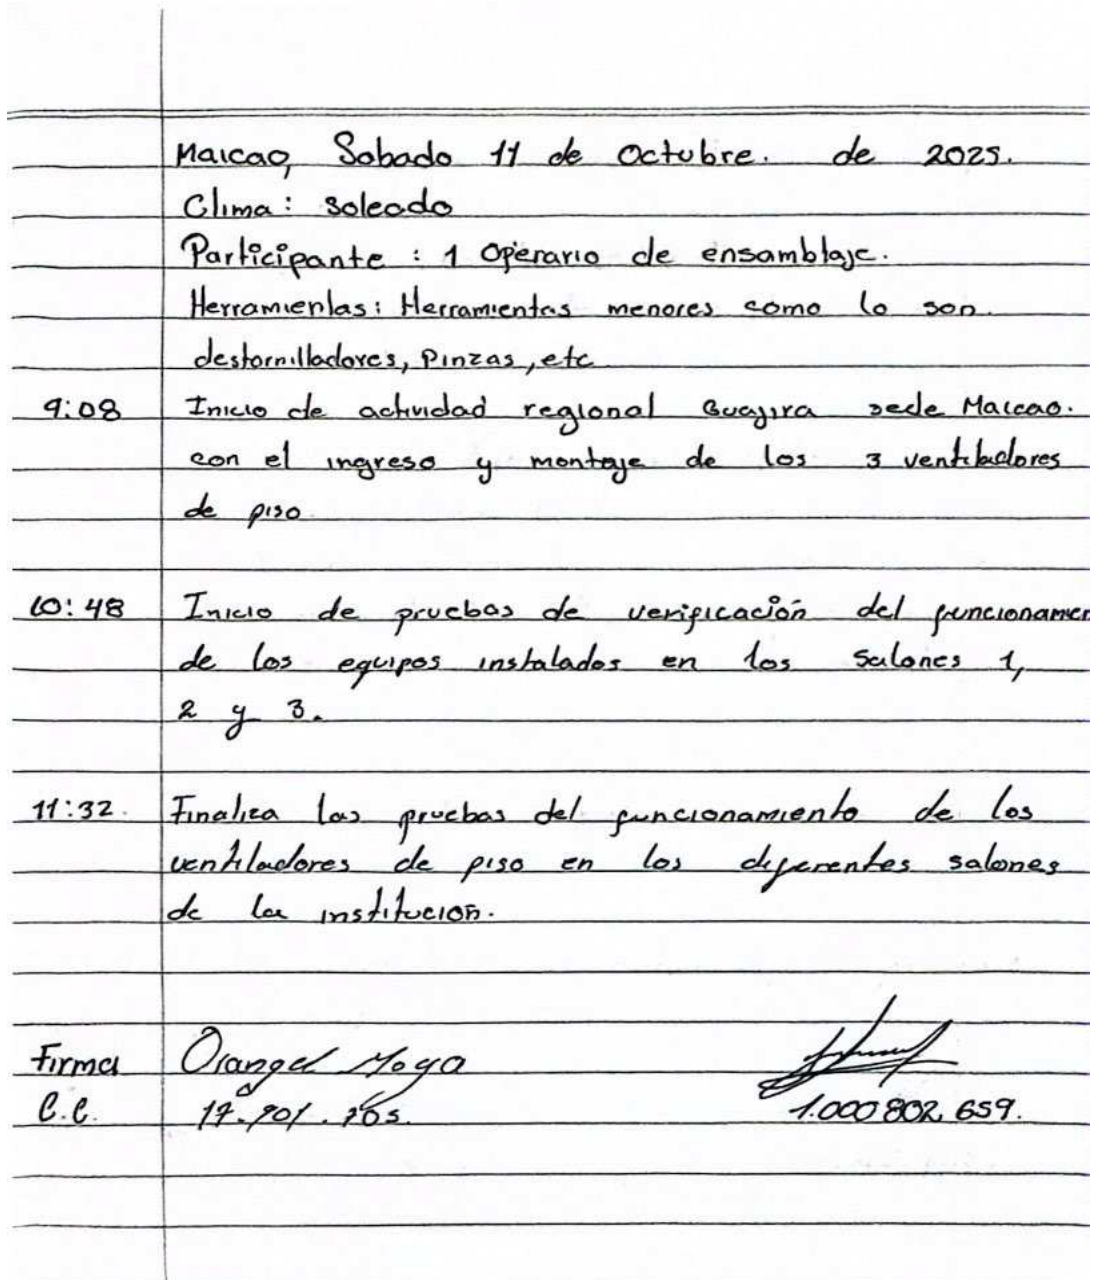 Maicao, Sabado 11 de Octubre. de 2025.
Clima: Soleado
Participante : 1 Operario de ensamblaje.
Herramientas: Herramientas menores como lo son
destornilladores, Pinzas, etc
9:08 Inicio de actividad regional Guajira sede Maicao.
con el ingreso y montaje de los 3 ventiladores
de piso
10:48 Inicio de pruebas de verificación del funcionamien
de los equipos instalados en los Salones 1,
2 y 3.
11:32. Finaliza las pruebas del funcionamiento de los
ventiladores de piso en los diferentes salones
de la institución.
Firma Orangel Moya
C.C. 1.000 802, 659.